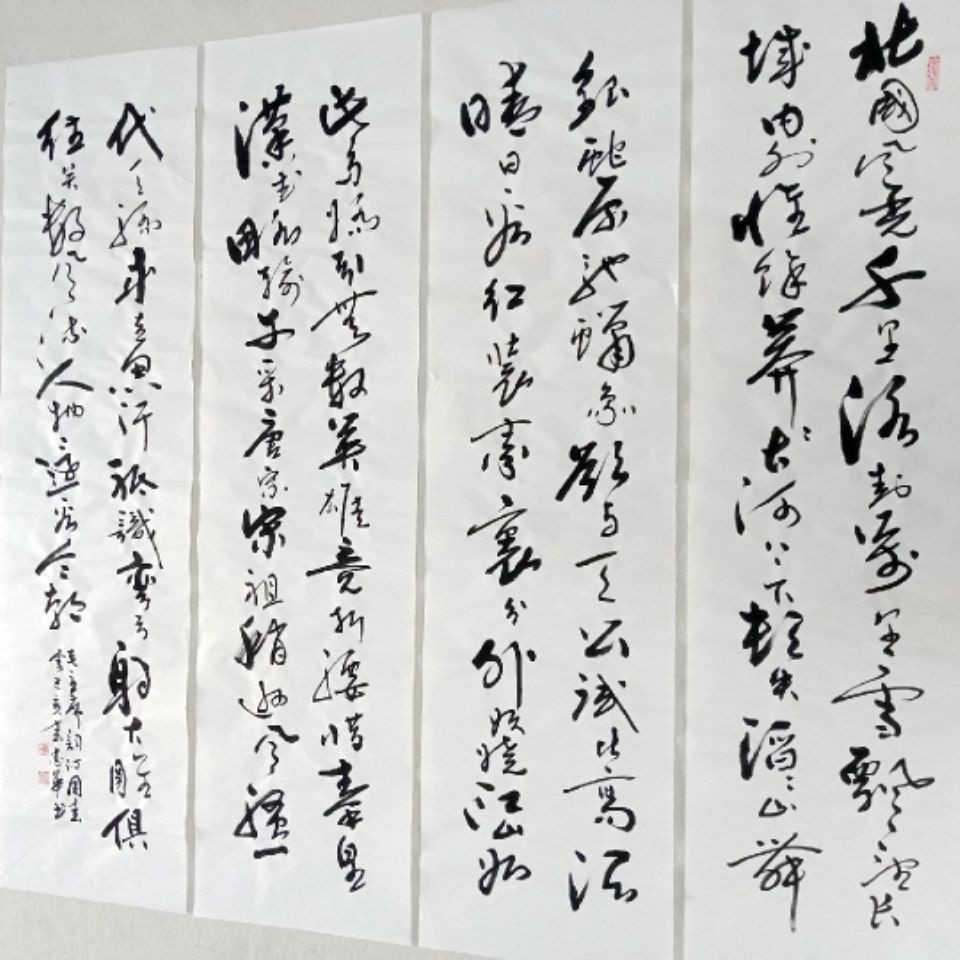 北國風光千里冰封萬里雪飄望長
城內外惟餘莽莽大河上下頓失滔滔山舞
銀蛇原馳蠟象欲與天公試比高須
晴日看紅裝素裹分外妖嬈江山如
此多嬌引無數英雄競折腰惜秦皇
漢武略輸文采唐宗宋祖稍遜風騷一
代天驕成吉思汗祇識彎弓射大雕俱
往矣數風流人物還看今朝
毛主席詞沁園春
雪